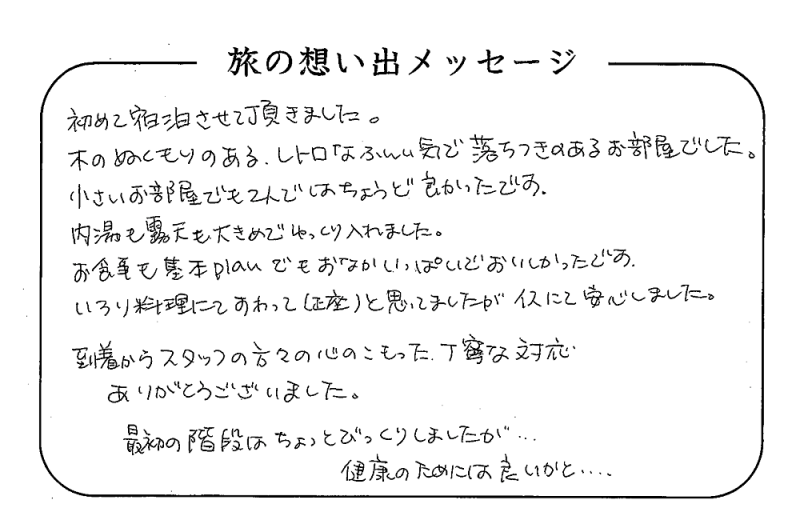 旅の想い出メッセージ
初めて宿泊させて頂きました。
木のぬくもりのある、レトロなふんい気で落ちつきのあるお部屋でした。
小さいお部屋でも2人ではちょうど良かったです。
内湯も露天も大きめでゆっくり入れました。
お食事も基本planでもおなかいっぱいでおいしかったです。
いろり料理にてすわって(正座)と思ってましたがイスにて安心しました。
到着からスタッフの方々の心のこもった、丁寧な対応
ありがとうございました。
最初の階段はちょっとびっくりしましたが…
健康のためには良いかと‥‥